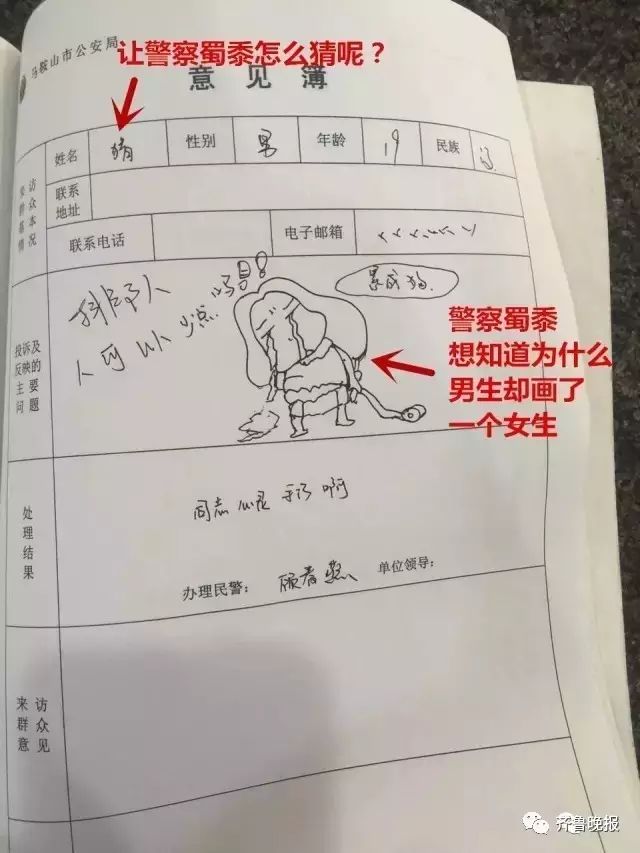 马鞍山市公安局
让警察蜀黍怎么猜呢？
意见簿
来访
群众
基本
情况
姓名 猜 性别 男 年龄 19 民族 汉
联系
地址
联系电话 电子邮箱
累成狗
人可以少点吗
投诉及
反映的
主要
问题
警察蜀黍
想知道为什么
男生却画了
一个女生
处
理
结
果
同志 心灵手巧啊
办理民警： 单位领导：
来访
群众
意见
齐鲁晚报